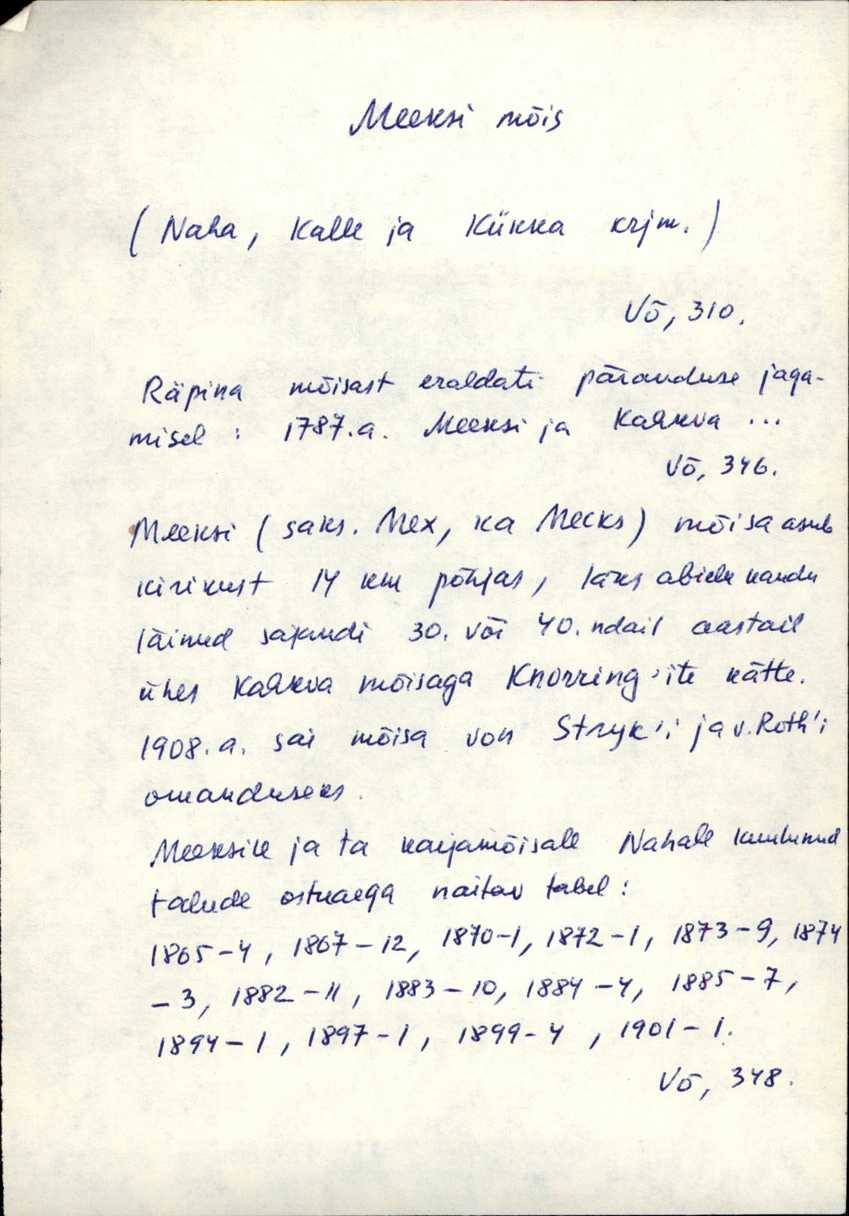 Meeksi mõis
(Naha, Kalle ja Kükka krjm.)
Võ, 310.
Räpina mõisast eraldati päranduse jaga-
misel: 1787.a. Meeksi ja Kahkva ...
Võ, 346.
Meeksi (saks. Mex, ka Mecks) mõisa asub
kirikust 14 km põhjas, läks abielu kaudu
läinud sajandi 30. või 40. ndail aastail
ühes Kahkva mõisaga Knorring'ite kätte.
1908.a. sai mõisa von Stryk'i ja v. Roth'i
omanduseks.
Meeksile ja ta karjamõisale Nahale kuulunud
talude ostuaega näitav tabel:
1865-4, 1867-12, 1870-1, 1872-1, 1873-9, 1874
-3, 1882-11, 1883-10, 1884-4, 1885-7,
1894-1, 1897-1, 1899-4, 1901-1.
Võ, 348.